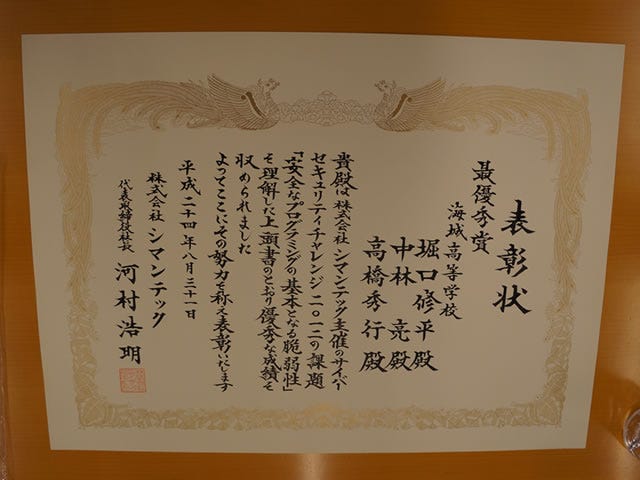 表彰状
最優秀賞
海城高等学校
堀口修平殿
中林亮殿
高橋秀行殿
貴殿は株式会社シマンテック主催のサイバー
セキュリティチャレンジ二〇一二の課題
「安全なプログラミングの基本となる脆弱性」
を理解した上頭書のとおり優秀な成績を
収められました
よってここにその努力を称え表彰いたします
平成二十四年八月三十一日
株式会社シマンテック
代表取締役社長 河村浩明